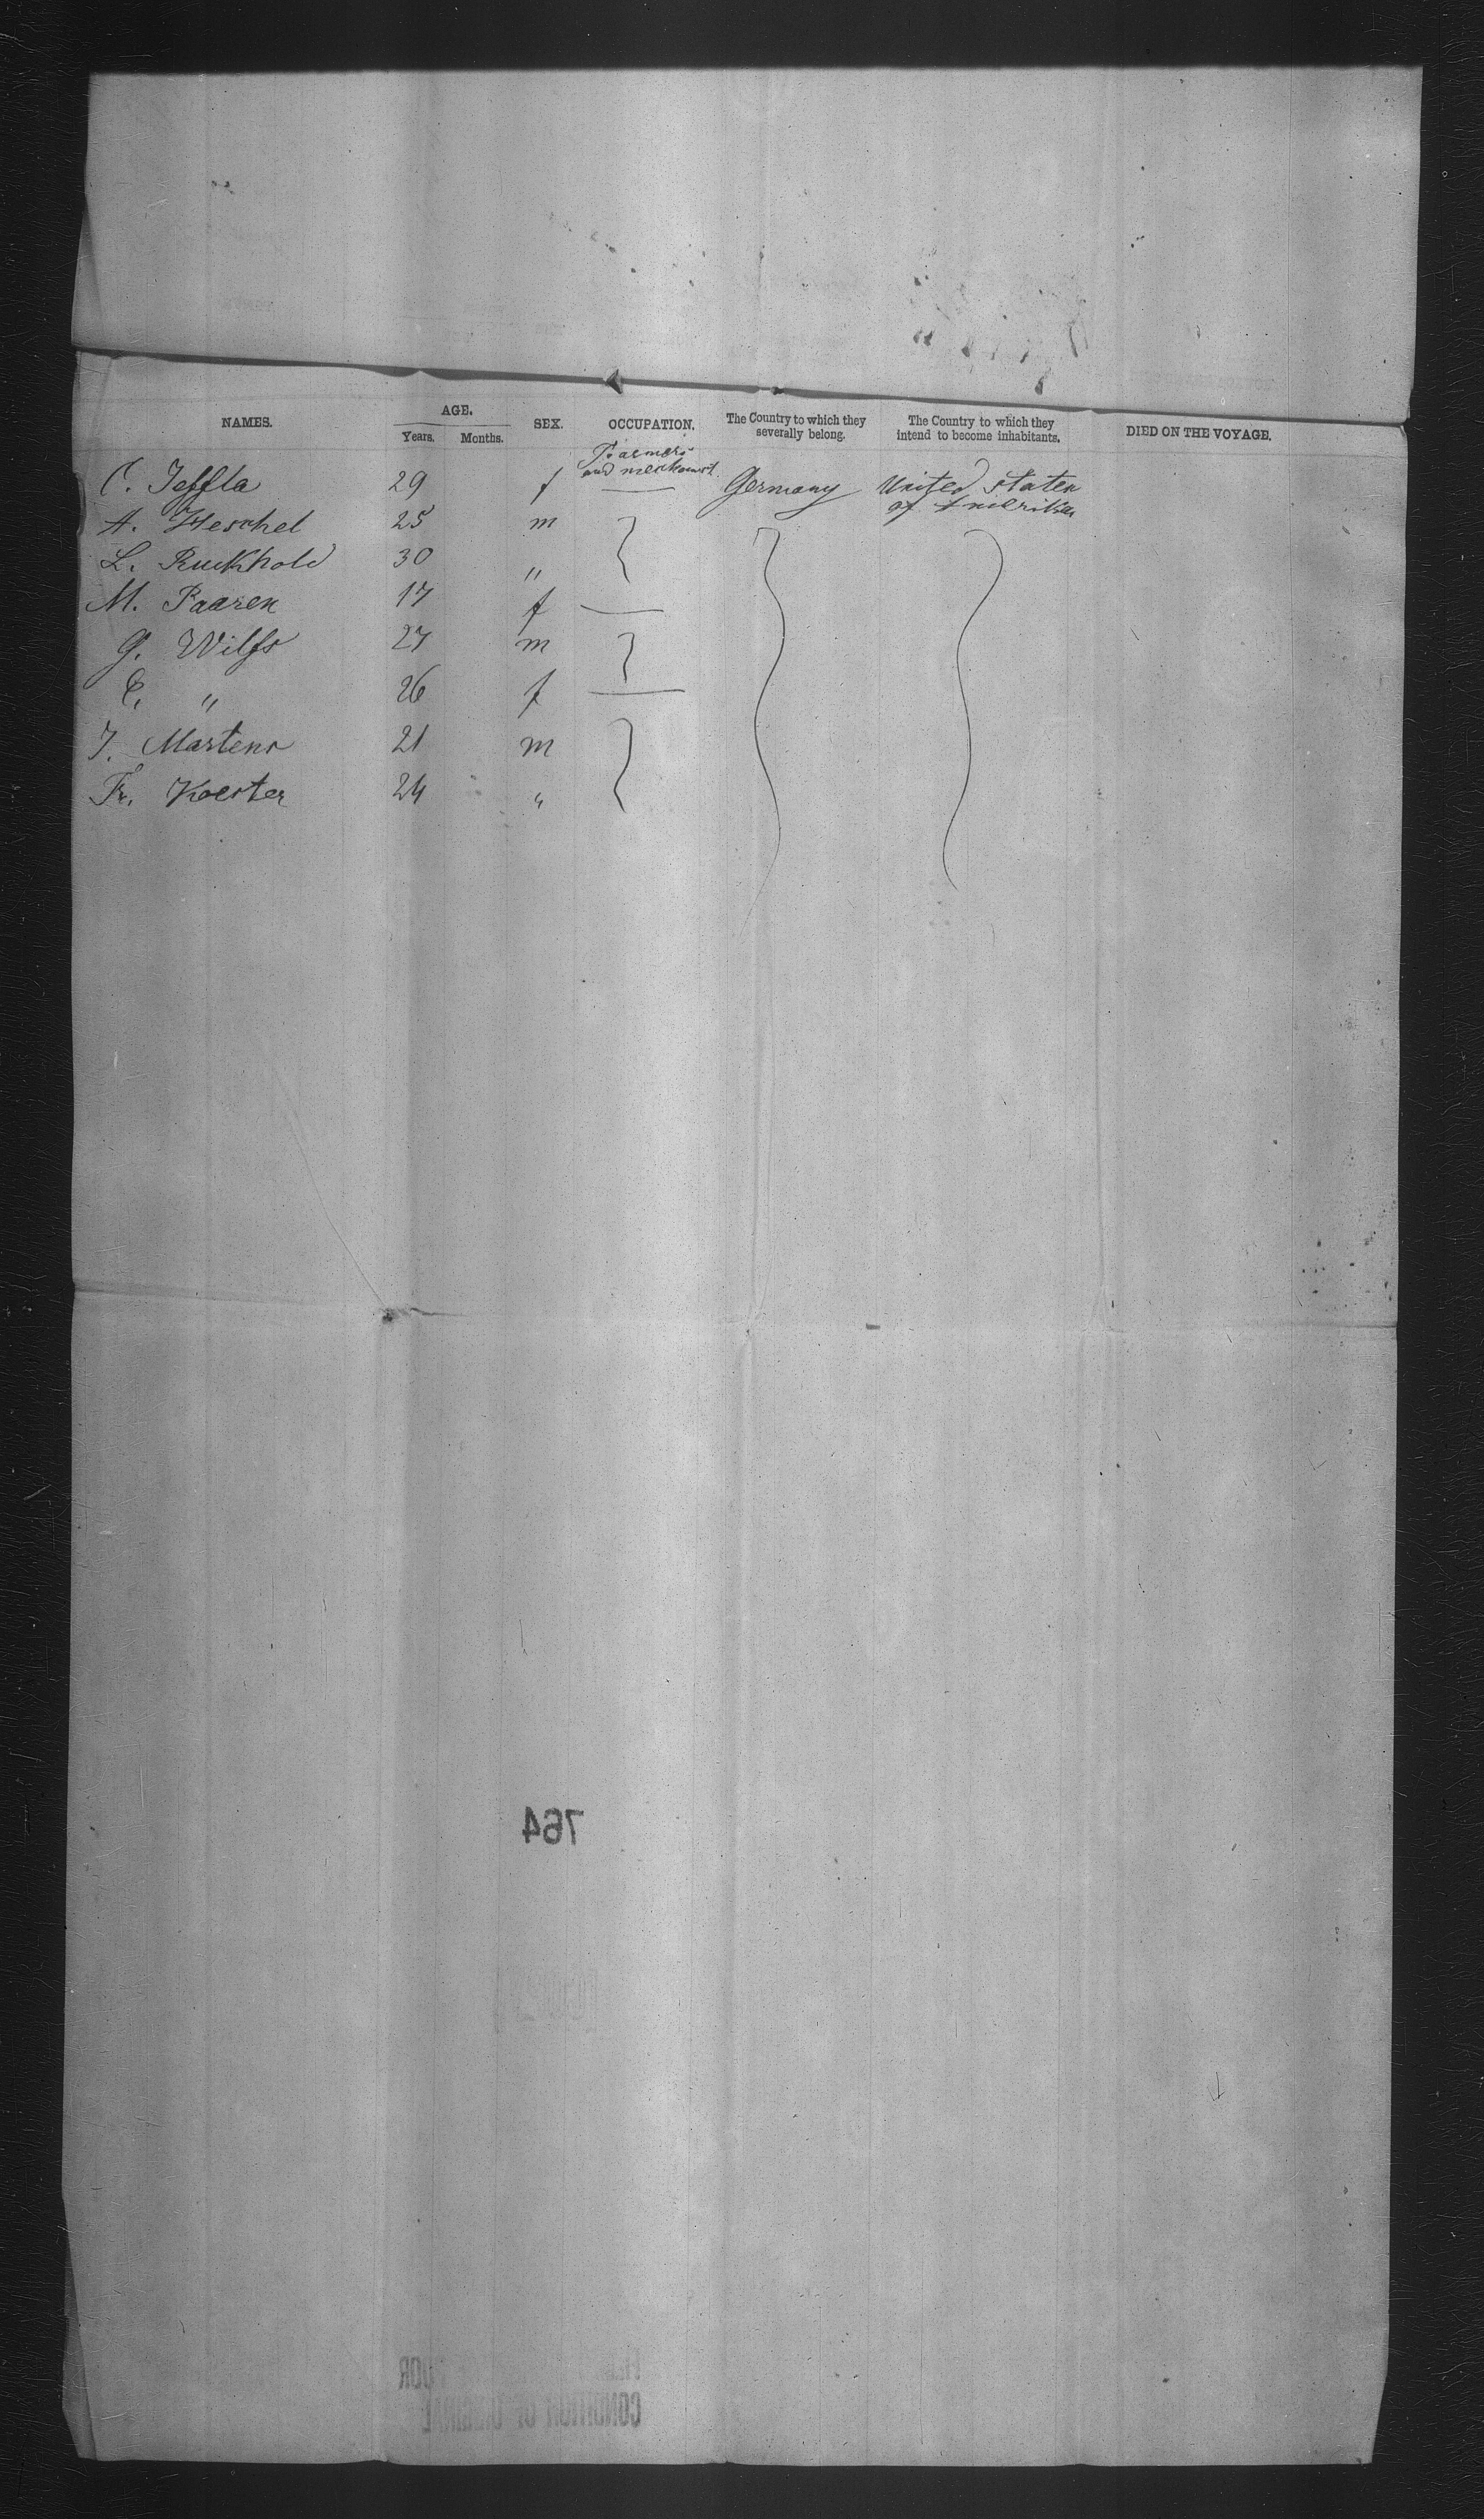 NAMES. AGE. SEX. OCCUPATION. The Country to which they severally belong. The Country to which they intend to become inhabitants. DIED ON THE VOYAGE.
Years. Months.
Farmers
and merchant
C. Jeffla 29 f — Germany United Staten
of Amerika
A. Heschel 25 m
L. Ruckhold 30 "
M. Paaren 17 f —
G. Wilfs 27 m
C. " 26 f —
J. Martens 21 m
Fr. Koester 24 "
764
CONDITION OF ORIGINAL